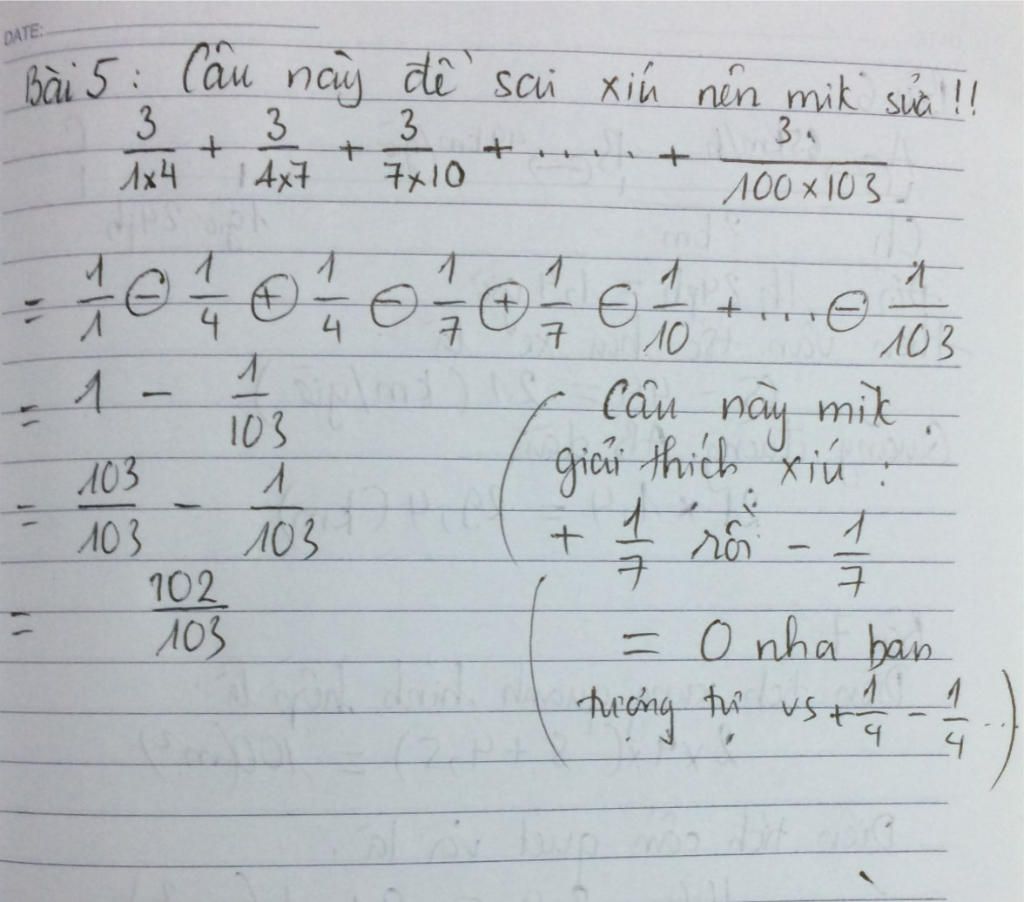 DATE:
Bài 5: Câu này đề sai xíu nên mik sửa!!!
3/1x4 + 3/4x7 + 3/7x10 + ..... + 3/100x103
= 1/1 - 1/4 + 1/4 - 1/7 + 1/7 - 1/10 + ... - 1/103
= 1 - 1/103
= 103/103 - 1/103
= 102/103
( Câu này mik
giải thích xíu:
+ 1/7 rồi - 1/7
= 0 nha bạn
tượng tự vs + 1/4 - 1/4 ...)